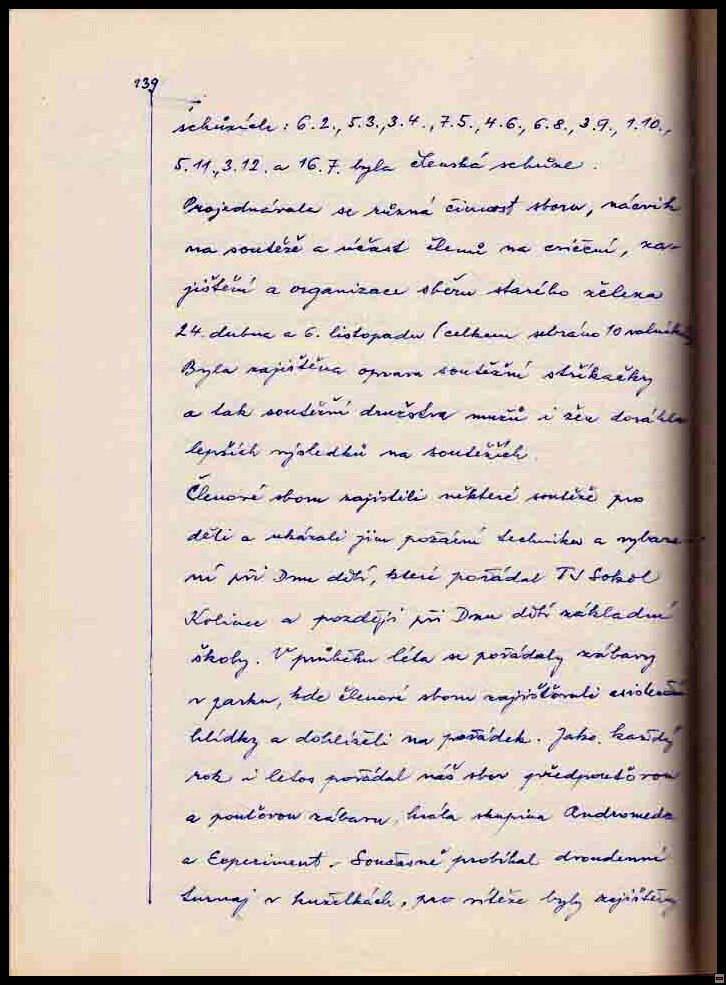 139
schůzích: 6.2., 5.3., 3.4., 7.5., 4.6., 6.8., 3.9., 1.10.,
5.11., 3.12. a 16.7. byla členská schůze.
Projednávala se různá činnost sboru, nácvik
na soutěže a účast členů na cvičení, za-
jištění a organizace sběru starého železa
24. dubna a 6. listopadu (celkem sebráno 10 valníků
Byla zajištěna oprava soutěžní stříkačky
a tak soutěžní družstva mužů i žen dosáhla
lepších výsledků na soutěžích.
Členové sboru zajistili některé soutěže pro
děti a ukázali jim požární techniku a vybave-
ní při Dnu dětí, které pořádal TJ Sokol
Kolinec a později při Dnu dětí základní
školy. V průběhu léta se pořádaly zábavy
v parku, kde členové sboru zajišťovali asistenční
hlídky a dohlíželi na pořádek. Jako každý
rok i letos pořádal náš sbor předpouťovou
a pouťovou zábavu, hrála skupina Andromeda
a Experiment. Současně probíhal dvoudenní
turnaj v kuželkách, pro vítěze byly zajištěny